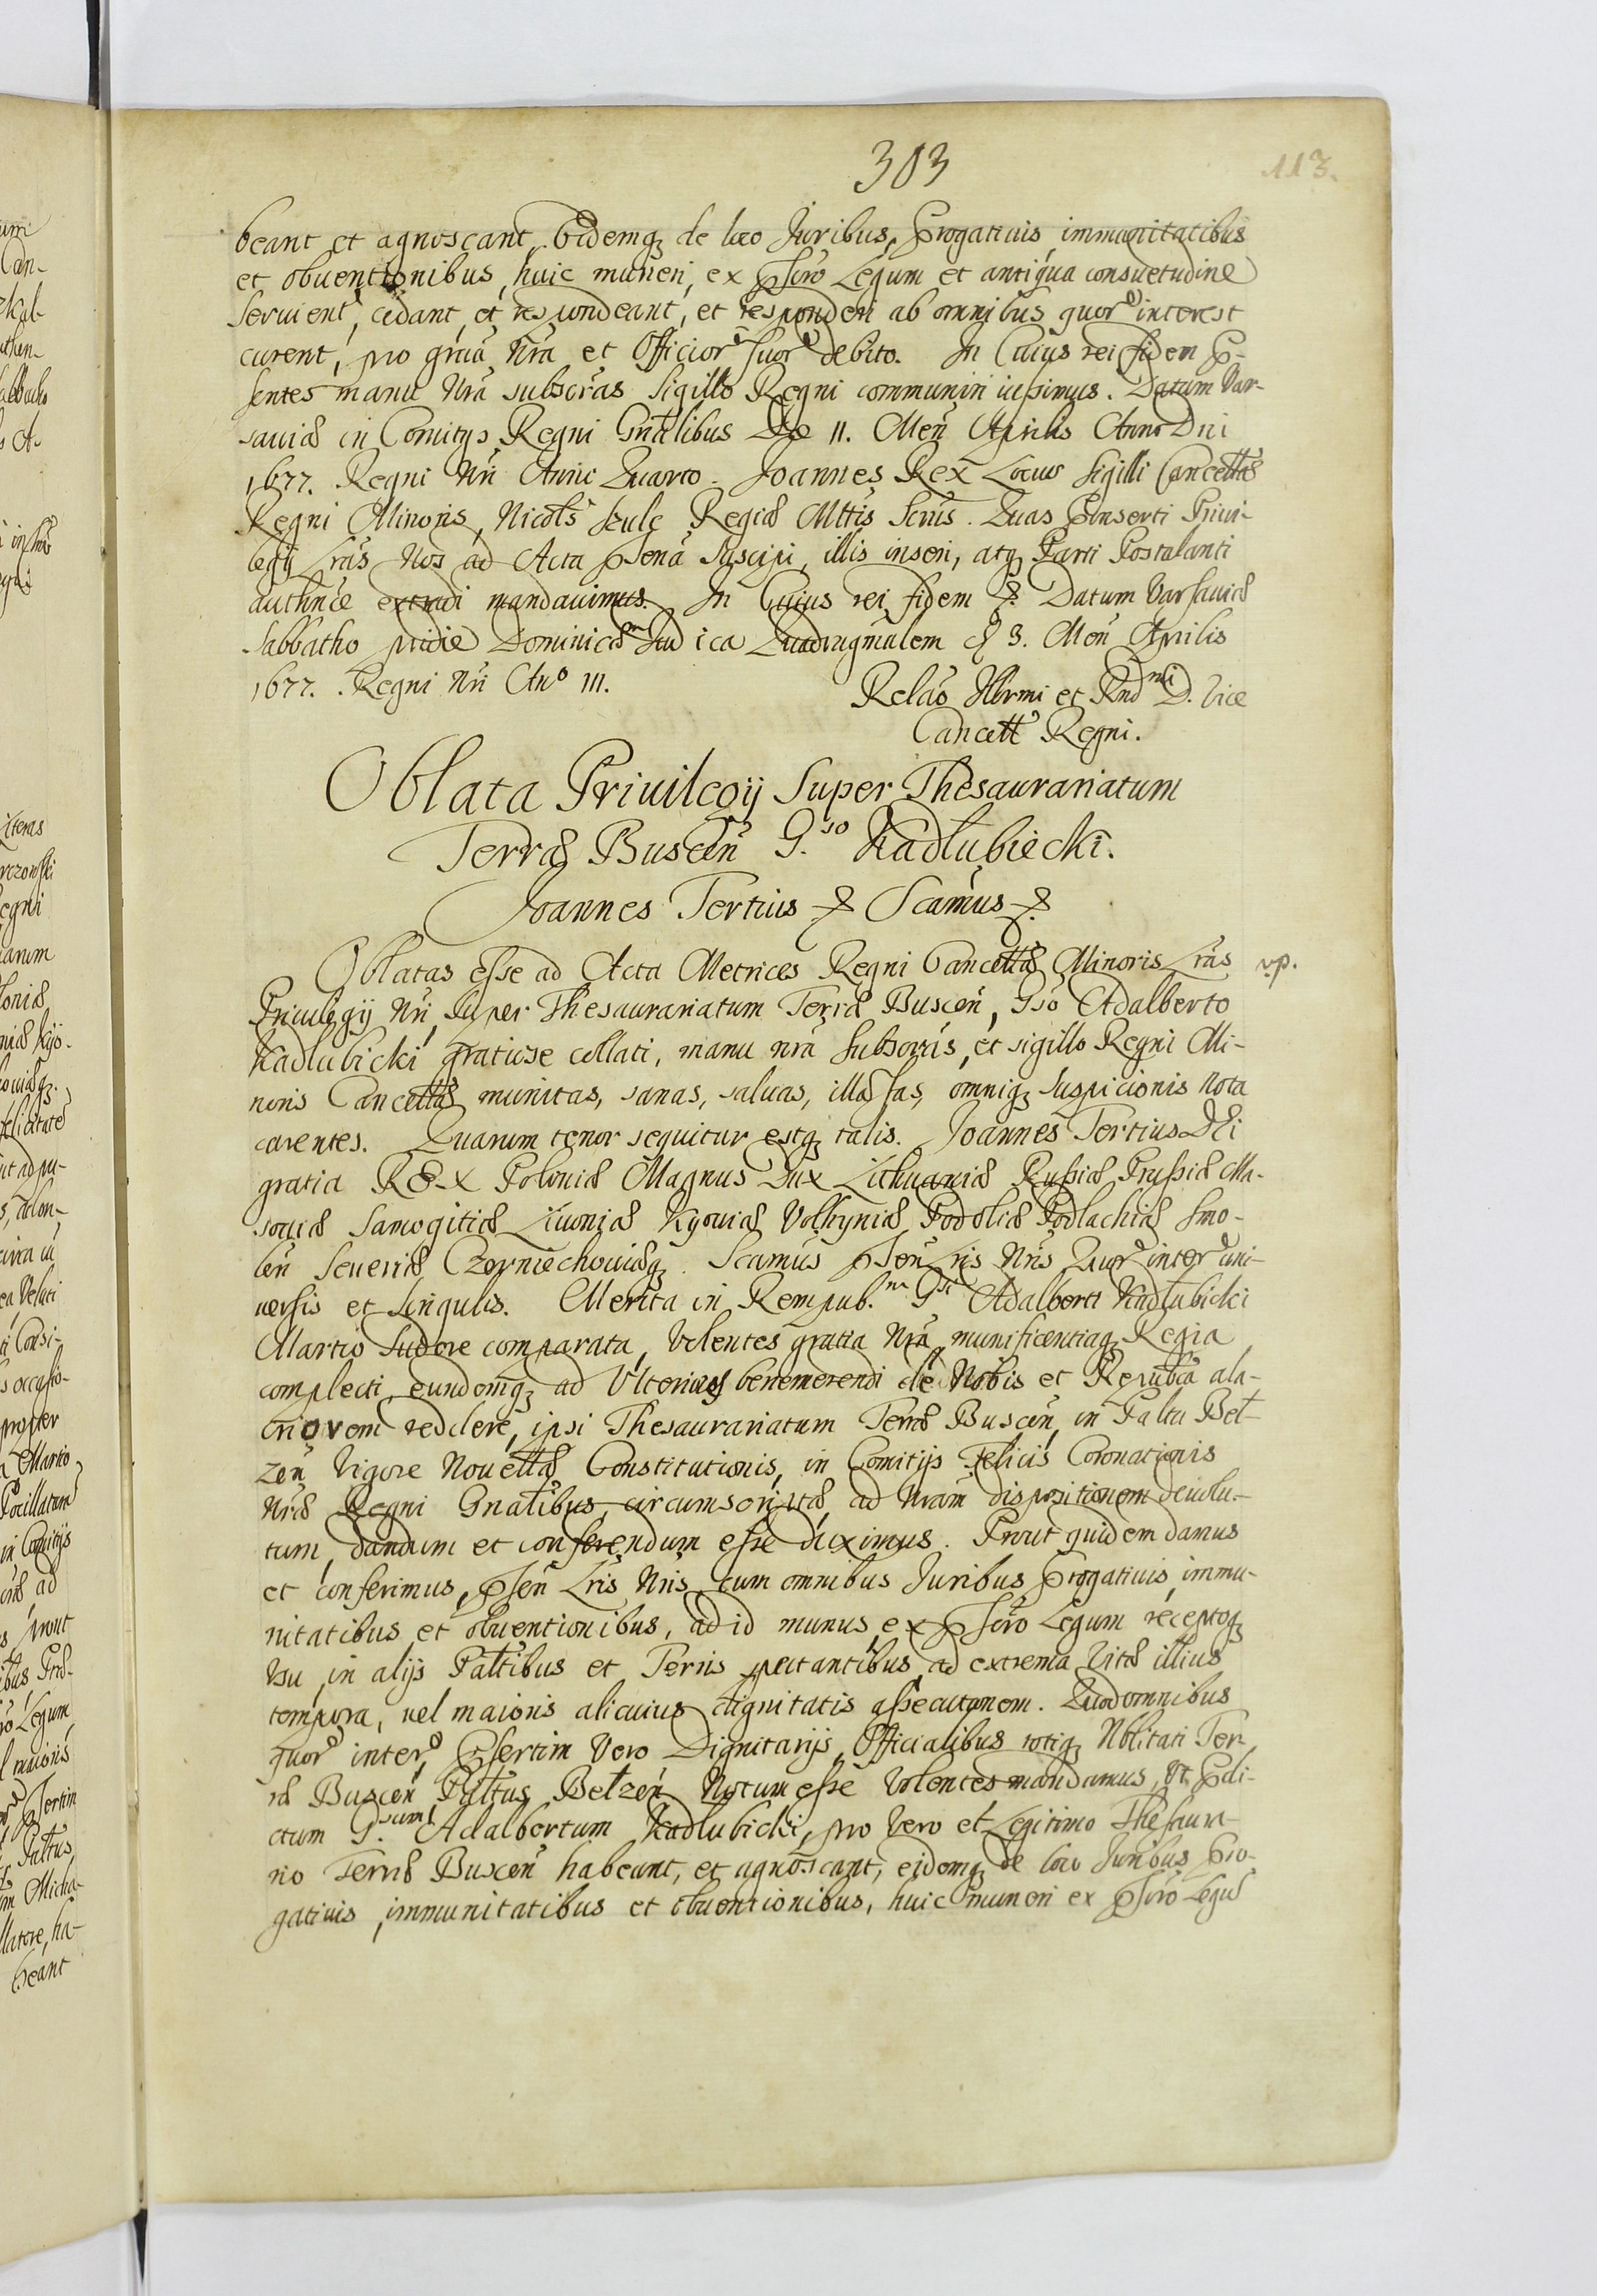 303
113.
beant et agnoscant, Eidemq de loco Juribus, Progatiuis immunitatibus
et obuentionibus, huic muneri, ex pscro Legum et antiqua consuetudine
seruient, cedant, et respondeant, et responderi ab omnibus quor interest
curent, pro gria Nra et Officior suor debito. In Cuius rei fidem P-
sentes manu Nra subscras Sigillo Regni communiri iussimus. Datum Var-
sauiæ in Comitys Regni Gnalibus Die 11. Men Aprilis Anno Dni
1677. Regni Nri Anni Quarto. Joannes Rex Locus Sigilli Cancellæ
Regni Minoris, Nicols Szulc Regiæ Mttis Scrius. Quas Pinserti Priui-
legij Lras Nos ad Acta psena suscipi, illis inseri, atq Parti Postulanti
authnce extradi mandauimus. In Cuius rei fidem & Datum Varsauiæ
Sabbatho pridie Dominicæ Judica Quadragmalem d 3. Men Aprilis
1677. Regni Nri Ano III.
Relao Illrmi et Rndmi D. Vice
Cancell Regni.
Oblata Priuilegij Super Thesaurariatum
Terræ Buscen G.so Kadlubiecki.
Joannes Tertius & Scamus &
Oblatas esse ad Acta Metrices Regni Cancellæ Minoris Lras
vp.
Priuilegij Nri, Super Thesaurariatum Terræ Buscen, Gso Adalberto
Kadlubicki gratiose collati, manu nra Subscris, et sigillo Regni Mi-
noris Cancellæ munitas, sanas, saluas, illæsas, omniq suspicionis nota
carentes. Quarum tenor sequitur estq talis. Joannes Tertius DEi
gratia REX Poloniæ Magnus Dux Lithuaniæ Russiæ Prussiæ Ma-
souiæ Samogitiæ Liuoniæ Kyouiæ Volhyniæ Podoliæ Podlachiæ Smo-
len Seueriæ Czerniechouiæq. Scamus psen Lris Nris Quor inter uni-
uersis et singulis. Merita in Rempub.m Gsi Adalberti Kadlubicki
Martio Sudore comparata, Volentes gratia Nra munificentiaq Regia
complecti, eundemq ad Vlterius benemerendi de Nobis et Republca ala-
criorem reddere, ipsi Thesaurariatum Terræ Buscen, in Paltu Bel-
zen Vigore Nouellæ Constitutionis, in Comitijs Felicis Coronationis
Nræ Regni Gnalibus circumscriptæ, ad Nram dispositionem deuolu-
tum, dandum et conferendum esse duximus. Prout quidem damus
et conferimus, psen Lris Nris cum omnibus Juribus Progatiuis, immu-
nitatibus et obuentionibus, ad id munus, ex pscro Legum receptoq
Vsu, in alijs Paltibus et Terris spectantibus, ad extrema Vitæ illius
tempora, vel maioris alicuius dignitatis assecutionem. Quod omnibus
quor inter, Psertim Vero Dignitarijs, Officialibus totiq Nblitati Ter-
ræ Buscen Paltus Belzen Notum esse Volentes mandamus, Vt Pdi-
ctum G.sum Adalbertum Kadlubicki, pro Vero et Legitimo Thesaura-
rio Terræ Buscen habeant, et agnoscant, eidemq de loco Juribus Pro-
gatiuis, immunitatibus et obuentionibus, huic muneri ex pscro Legu